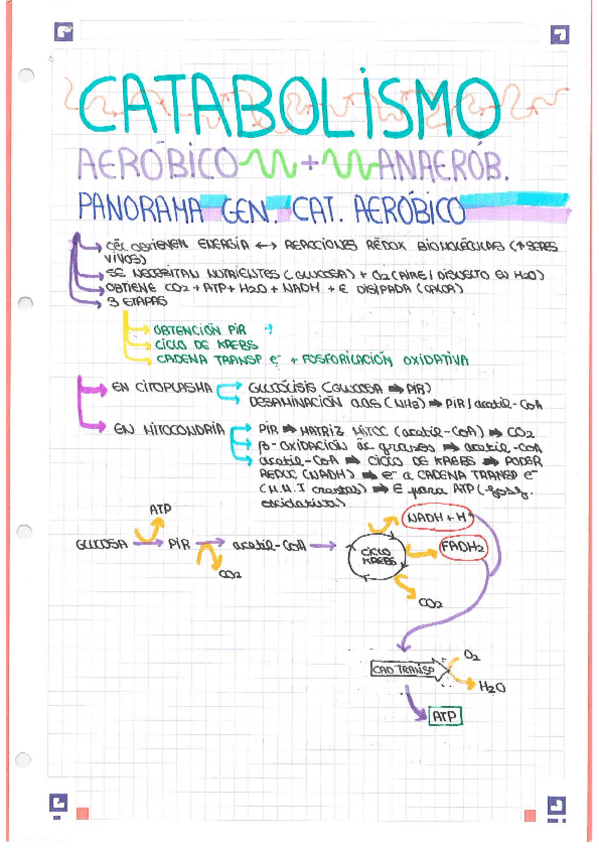 CATABOLISMO
AERÓBICO + ANAERÓB.
PANORAMA GEN. CAT. AERÓBICO
CÉL OBTIENEN ENERGÍA ↔ REACCIONES RÉDOX BIOMOLÉCULAS (↑ SERES
VIVOS)
SE NECESITAN NUTRIENTES (GLUCOSA) + O2 (AIRE / DISUELTO EN H2O)
OBTIENE CO2 + ATP + H2O + NADH + E DISIPADA (CALOR)
3 ETAPAS
OBTENCIÓN PIR →
CICLO DE KREBS
CADENA TRANSP e⁻ + FOSFORILACIÓN OXIDATIVA
EN CITOPLASMA
GLUCÓLISIS (GLUCOSA ➡ PIR)
DESAMINACIÓN (NH3) ➡ PIR / acetil-CoA
EN MITOCONDRIA
PIR ➡ MATRIZ MITOC (acetil-CoA) ➡ CO2
β-OXIDACIÓN ác grasos ➡ acetil-CoA
acetil-CoA ➡ CICLO DE KREBS ➡ PODER
REDUC (NADH) ➡ e⁻ a CADENA TRANSP e⁻
(M.M.I crestas) ➡ E para ATP (fosf.
oxidativa)
ATP
NADH + H⁺
GLUCOSA → PIR → acetil-CoA →
CICLO
KREBS
FADH2
CO2
CO2
O2
CAD TRANSP
H2O
ATP